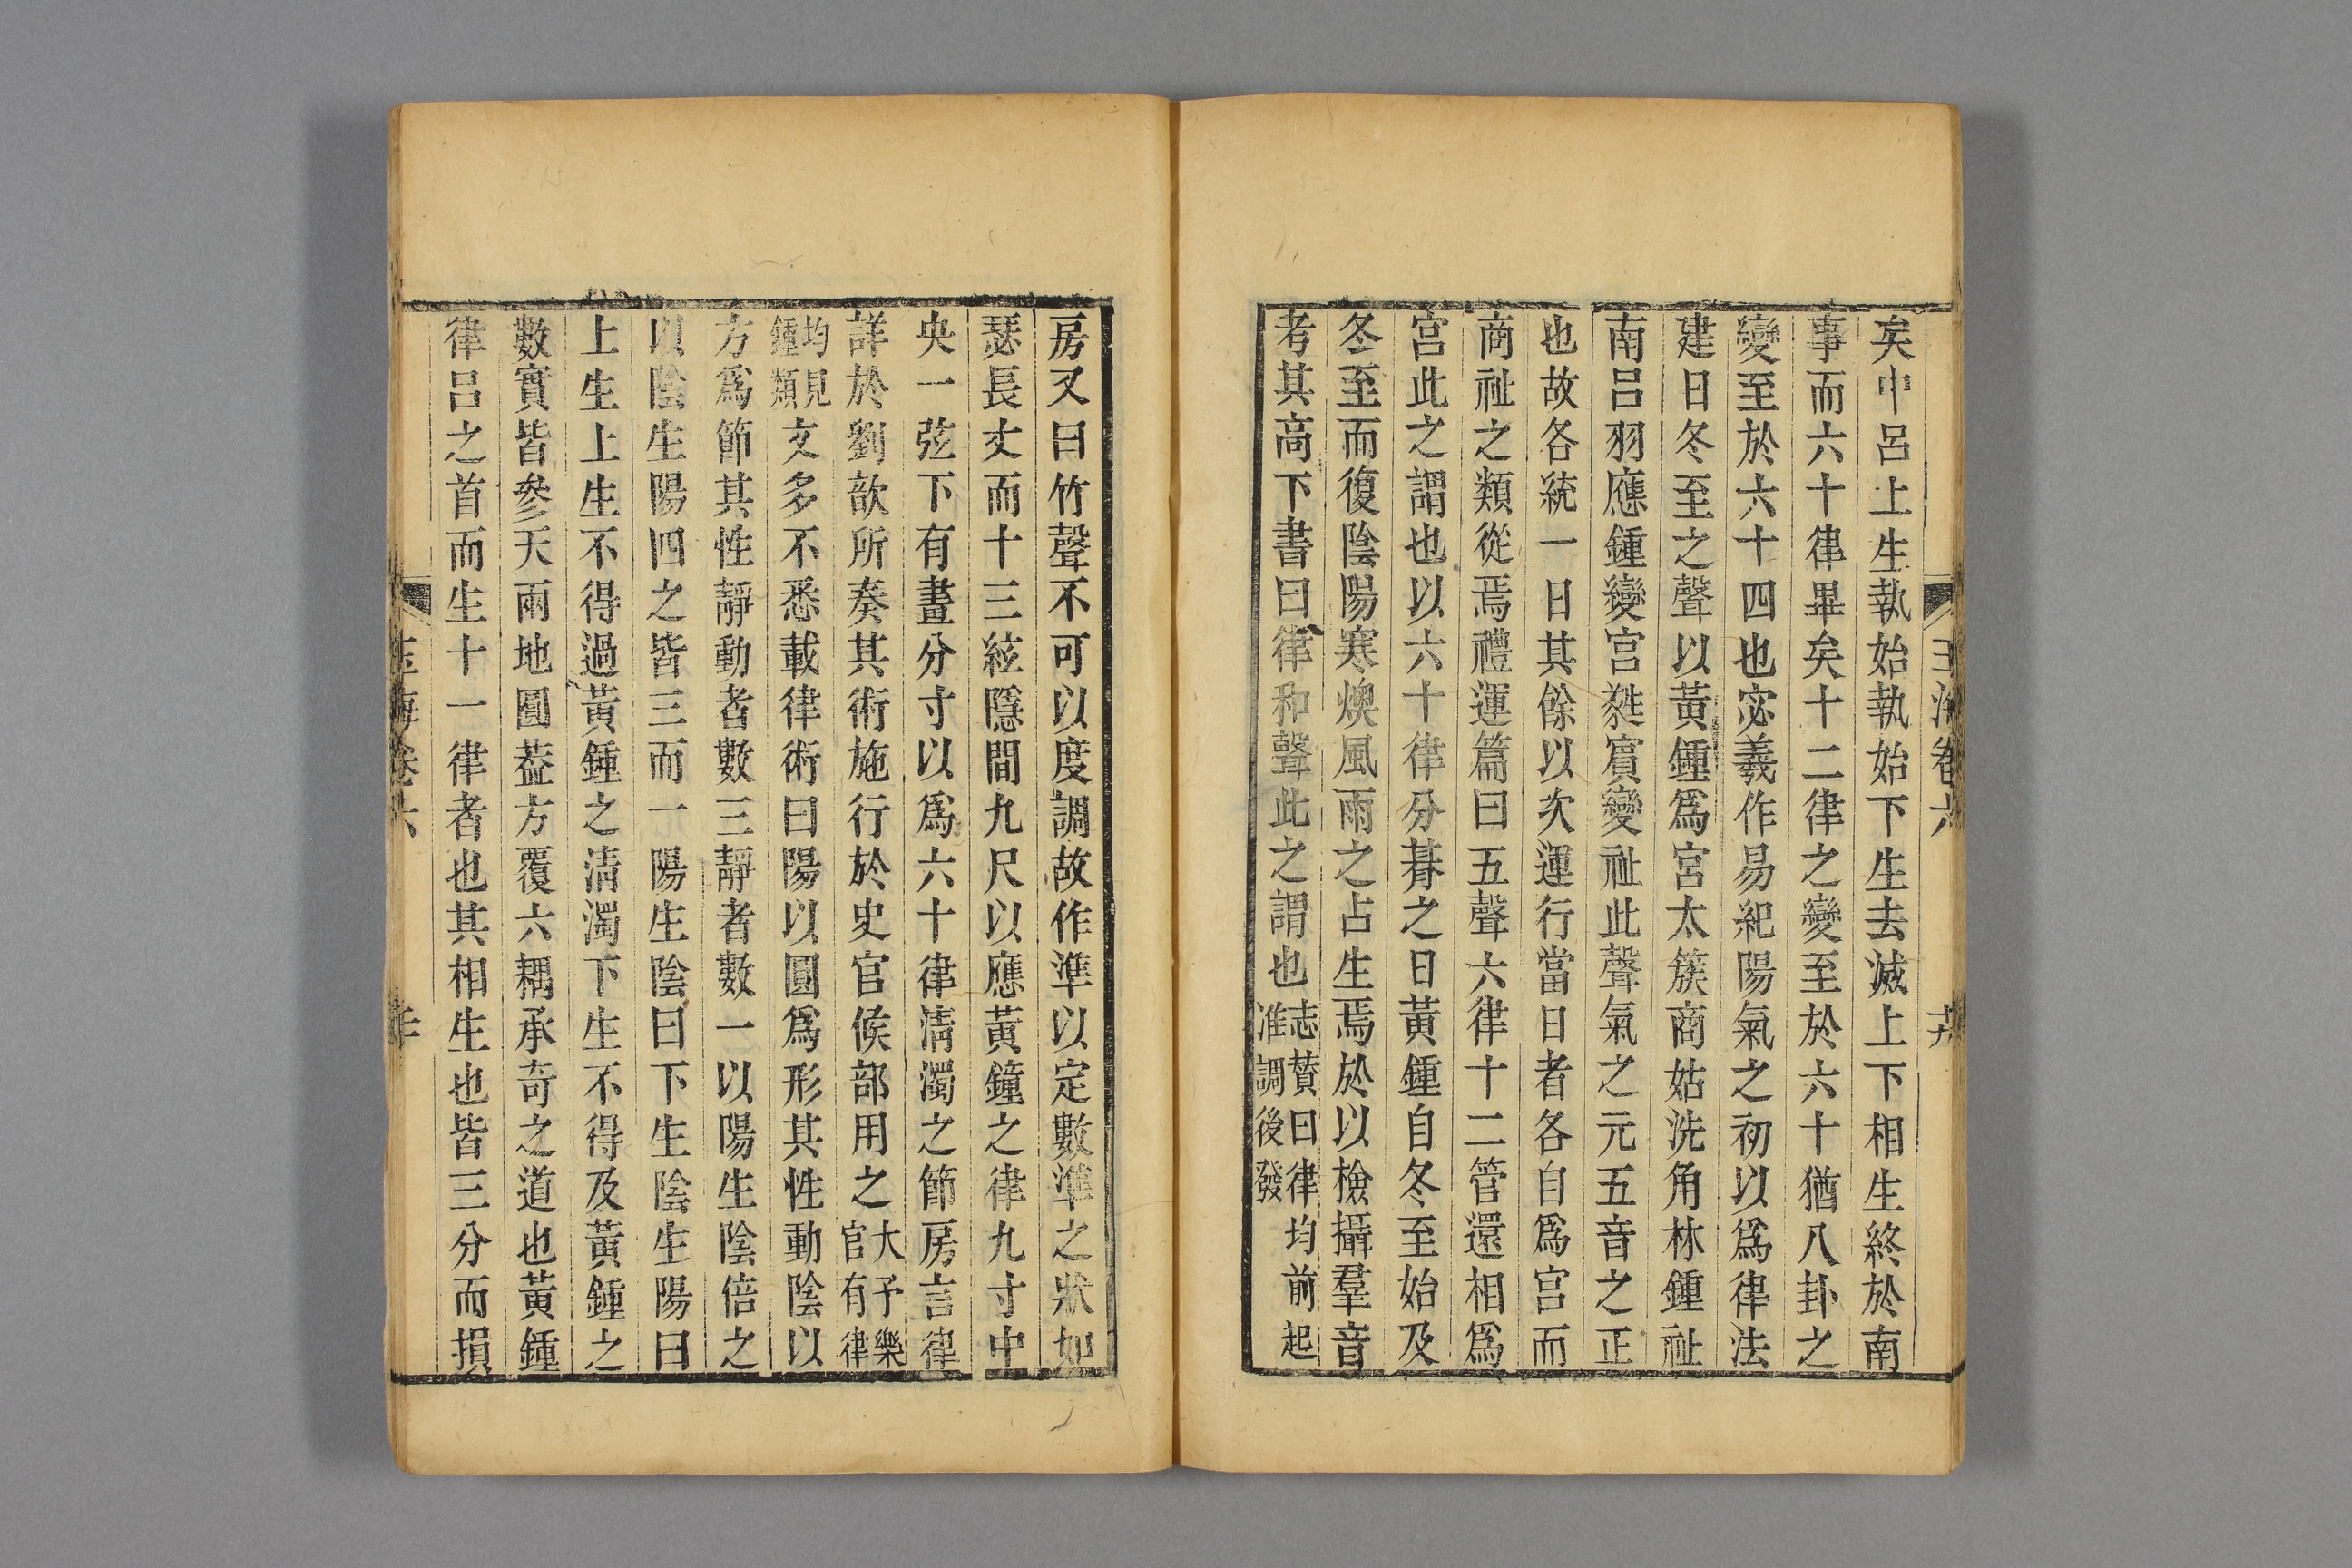 矣中呂上生執始執始下生去滅上下相生終於南
事而六十律畢矣十二律之變至於六十猶八卦之
變至於六十四也宓羲作易紀陽氣之初以爲律法
建日冬至之聲以黃鍾爲宮太簇商姑洗角林鍾祉
南呂羽應鍾變宮蕤賓變祉此聲氣之元五音之正
也故各統一日其餘以次運行當日者各自爲宮而
商祉之類從焉禮運篇曰五聲六律十二管還相爲
宮此之謂也以六十律分朞之日黃鍾自冬至始及
冬至而復陰陽寒燠風雨之占生焉於以檢攝羣音
考其高下書曰律和聲此之謂也志贊曰律均前起准調後發
房又曰竹聲不可以度調故作準以定數準之狀如
瑟長丈而十三絃隱間九尺以應黃鐘之律九寸中
央一弦下有畫分寸以爲六十律淸濁之節房言律
詳於劉歆所奏其術施行於史官候部用之大予樂官有律
均見鍾類文多不悉載律術曰陽以圓爲形其性動陰以
方爲節其性靜動者數三靜者數一以陽生陰倍之
以陰生陽四之皆三而一陽生陰曰下生陰生陽曰
上生上生不得過黃鍾之淸濁下生不得及黃鍾之
數實皆參天兩地圓葢方覆六耦承奇之道也黃鍾
律呂之首而生十一律者也其相生也皆三分而損